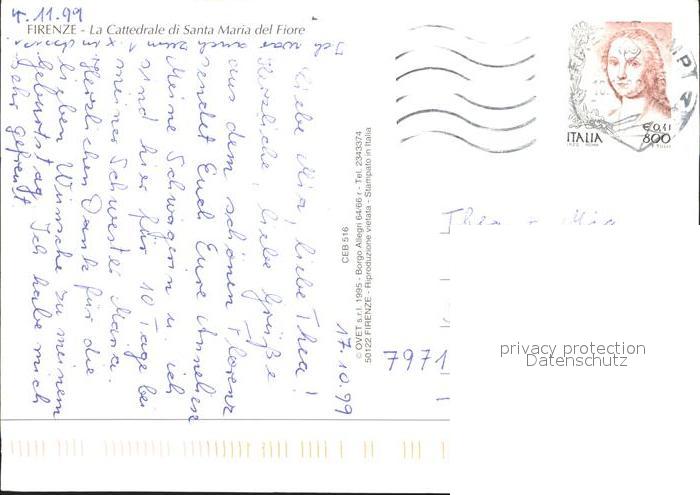 4.11.99
FIRENZE - La Cattedrale di Santa Maria del Fiore
17.10.99
Liebe Mia, liebe Thea!
Herzliche, liebe Grüße
aus dem schönen Florenz
sendet Euch Eure Annelise
Meine Schwägerin u. ich
sind hier für 10 Tage bei
meiner Schwester Maria.
Herzlichen Dank für die
lieben Wünsche zu meinem
Geburtstag. Ich habe mich
sehr gefreut.
Ich war auch zum 1. x in
CEB 516
© OVET s.r.l. 1995 - Borgo Allegri 64/66 r - Tel. 2343374
50122 FIRENZE - Riproduzione vietata - Stampato in Italia
€ 0,41
ITALIA 800
Thea Mia
7971
privacy protection
Datenschutz